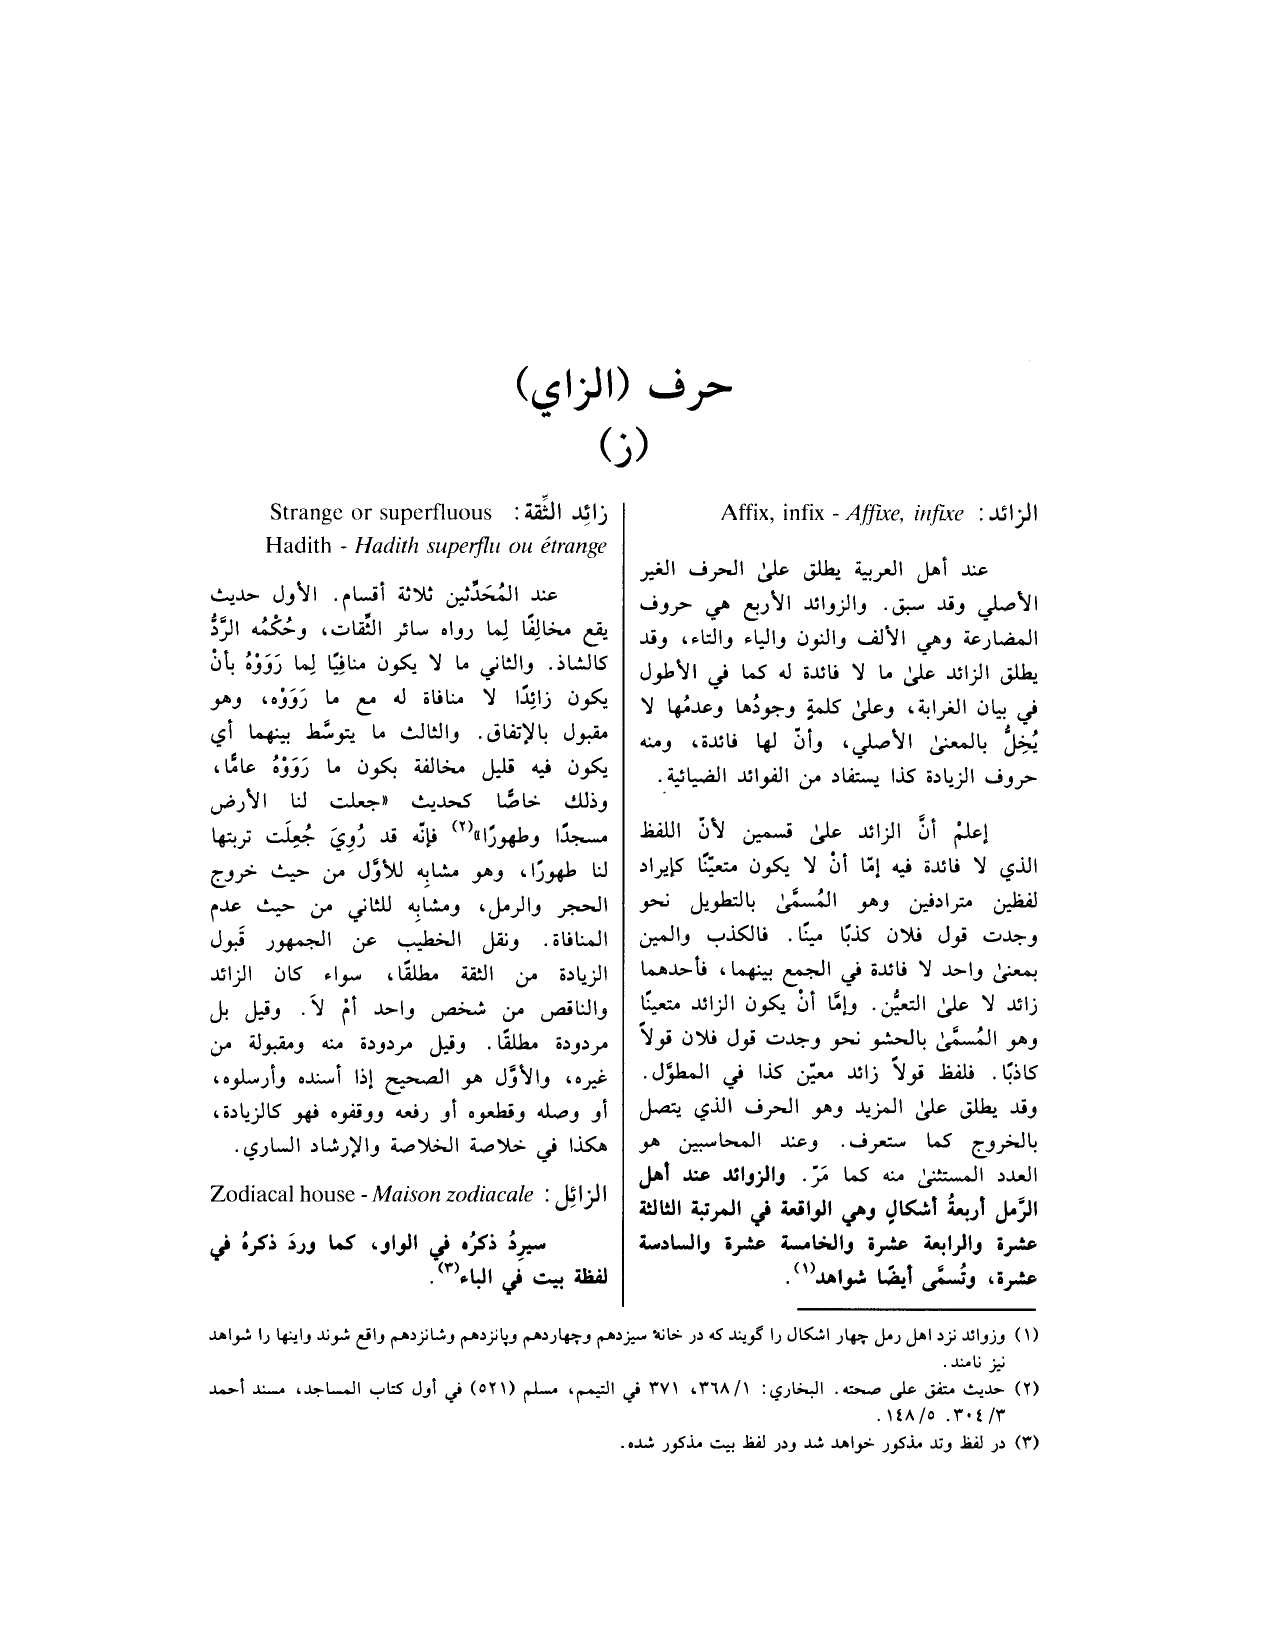 حرف (الزاي)
(ز)
الزائد: Affix, infix - Affixe, infixe
عند أهل العربية يطلق علىٰ الحرف الغير
الأصلي وقد سبق. والزوائد الأربع هي حروف
المضارعة وهي الألف والنون والياء والتاء، وقد
يطلق الزائد علىٰ ما لا فائدة له كما في الأطول
في بيان الغرابة، وعلىٰ كلمةٍ وجودُها وعدمُها لا
يُخِلُّ بالمعنىٰ الأصلي، وأنّ لها فائدة، ومنه
حروف الزيادة كذا يستفاد من الفوائد الضيائية.
إعلمْ أنَّ الزائد علىٰ قسمين لأنّ اللفظ
الذي لا فائدة فيه إمّا أنْ لا يكون متعيّنًا كإيراد
لفظين مترادفين وهو المُسمَّىٰ بالتطويل نحو
وجدت قول فلان كذبًا مينًا. فالكذب والمين
بمعنىٰ واحد لا فائدة في الجمع بينهما، فأحدهما
زائد لا علىٰ التعيُّن. وإمَّا أنْ يكون الزائد متعينًا
وهو المُسمَّىٰ بالحشو نحو وجدت قول فلان قولاً
كاذبًا. فلفظ قولاً زائد معيّن كذا في المطوَّل.
وقد يطلق علىٰ المزيد وهو الحرف الذي يتصل
بالخروج كما ستعرف. وعند المحاسبين هو
العدد المستثنىٰ منه كما مَرّ. والزوائد عند أهل
الرَّمل أربعةُ أشكالٍ وهي الواقعة في المرتبة الثالثة
عشرة والرابعة عشرة والخامسة عشرة والسادسة
عشرة، وتُسمَّى أيضًا شواهد(١).
زائِد الثِّقة: Strange or superfluous
Hadith - Hadith superflu ou étrange
عند المُحَدِّثين ثلاثة أقسام. الأول حديث
يقع مخالِفًا لِما رواه سائر الثِّقات، وحُكْمُه الرَّدُّ
كالشاذ. والثاني ما لا يكون منافيًا لِما رَوَوْهُ بأنْ
يكون زائِدًا لا منافاة له مع ما رَوَوْه، وهو
مقبول بالإتفاق. والثالث ما يتوسَّط بينهما أي
يكون فيه قليل مخالفة بكون ما رَوَوْهُ عامًّا،
وذلك خاصًّا كحديث «جعلت لنا الأرض
مسجدًا وطهورًا»(٢) فإنّه قد رُوِيَ جُعِلَت تربتها
لنا طهورًا، وهو مشابِه للأوَّل من حيث خروج
الحجر والرمل، ومشابِه للثاني من حيث عدم
المنافاة. ونقل الخطيب عن الجمهور قَبول
الزيادة من الثقة مطلقًا، سواء كان الزائد
والناقص من شخص واحد أمْ لاَ. وقيل بل
مردودة مطلقًا. وقيل مردودة منه ومقبولة من
غيره، والأوَّل هو الصحيح إذا أسنده وأرسلوه،
أو وصله وقطعوه أو رفعه ووقفوه فهو كالزيادة،
هكذا في خلاصة الخلاصة والإرشاد الساري.
الزائِل: Zodiacal house - Maison zodiacale
سيرِدُ ذكرُه في الواو، كما وردَ ذكرهُ في
لفظة بيت في الباء(٣).
(١) وزوائد نزد اهل رمل چهار اشكال را گويند كه در خانهٔ سيزدهم وچهاردهم وپانزدهم وشانزدهم واقع شوند واينها را شواهد
نيز نامند.
(٢) حديث متفق على صحته. البخاري: ١/ ٣٦٨، ٣٧١ في التيمم، مسلم (٥٢١) في أول كتاب المساجد، مسند أحمد
٣/ ٣٠٤. ٥/ ١٤٨.
(٣) در لفظ وتد مذكور خواهد شد ودر لفظ بيت مذكور شده.